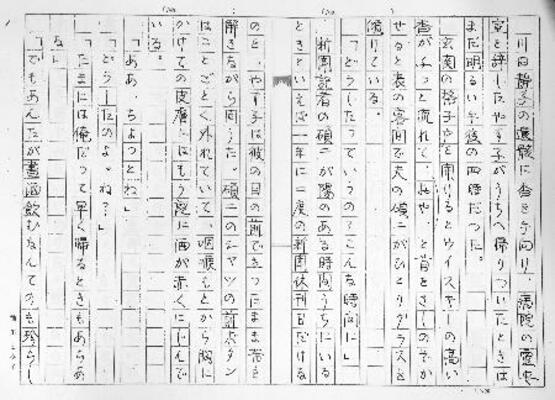 川田静子の遺骸に香を手向け、病院の霊安
室を辞したやす子がうちへ帰りついたときは
まだ明るい午後の四時だった。
玄関の格子戸を開けるとウイスキーの高い
香がふっと流れて、おや、と首をさしのぞか
せると表の客間で夫の碩二がひとりグラスを
傾けている。
「どうしたっていうの？こんな時間に」
新聞記者の碩二が陽のある時間うちにいる
ときといえば一年に二度の新聞休刊日だけな
のと、やす子は彼の目の前で立ったまま帯を
解きながら問うた。碩二のシャツの前ボタン
はことごとく外れていて、咽喉もとから胸に
かけての皮膚にはもう酔が赤くにじんで
いる。
「ああ、ちょっとね」
「どうしたのよ。ね？」
「たまには俺だって早く帰るときもあらあ
な」
「でもあんたが昼酒飲むなんてのも珍らし